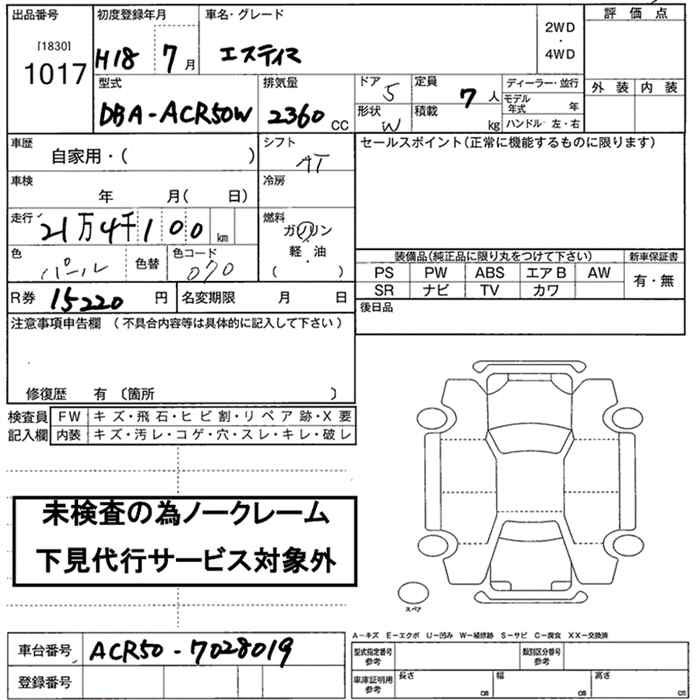 出品番号 初度登録年月 車名・グレード 評価点
[1830]
1017 H18 7月 エスティマ 2WD・4WD
型式 排気量 ドア 5 定員 7人 ディーラー・並行 外装 内装
DBA-ACR50W 2360cc 形状 W 積載 kg モデル年式 年
ハンドル 左・右
車歴 自家用・( ) シフト AT セールスポイント(正常に機能するものに限ります)
車検 年 月( 日) 冷房
走行 21万4千100km 燃料 ガソリン・軽油 ( )
色 パール 色替 色コード 070
装備品(純正品に限り丸をつけて下さい) 新車保証書
PS PW ABS エアB AW 有・無
SR ナビ TV カワ
R券 15220円 名変期限 月 日 後日品
注意事項申告欄 (不具合内容等は具体的に記入して下さい)
修復歴 有 〔箇所 〕
検査員記入欄 FW キズ・飛石・ヒビ割・リペア跡・X要
内装 キズ・汚レ・コゲ・穴・スレ・キレ・破レ
未検査の為ノークレーム
下見代行サービス対象外
スペア
A-キズ E-エクボ U-凹み W-補修跡 S-サビ C-腐食 XX-交換済
車台番号 ACR50-7028019 型式指定番号参考 類別区分番号参考
登録番号 車庫証明用参考 長さ cm 幅 cm 高さ cm